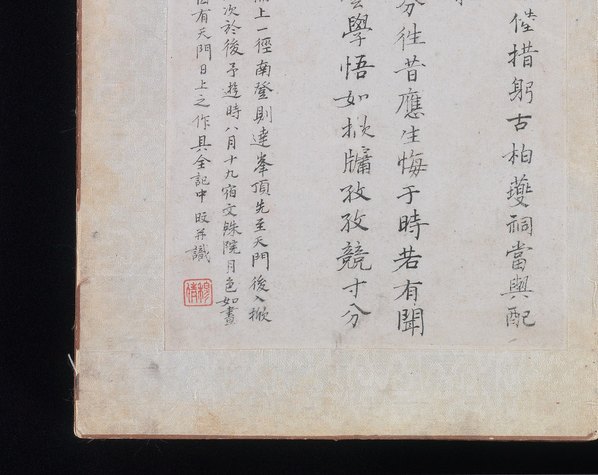 措躬古柏夔祠當與配
往昔應生悔于時若有聞
學悟如牖孜孜競寸分
上一徑南登則達峯頂先至天門後入
次於後予遊時八月十九宿文殊院月色如晝
有天門日上之作具全記中并識
穆倩